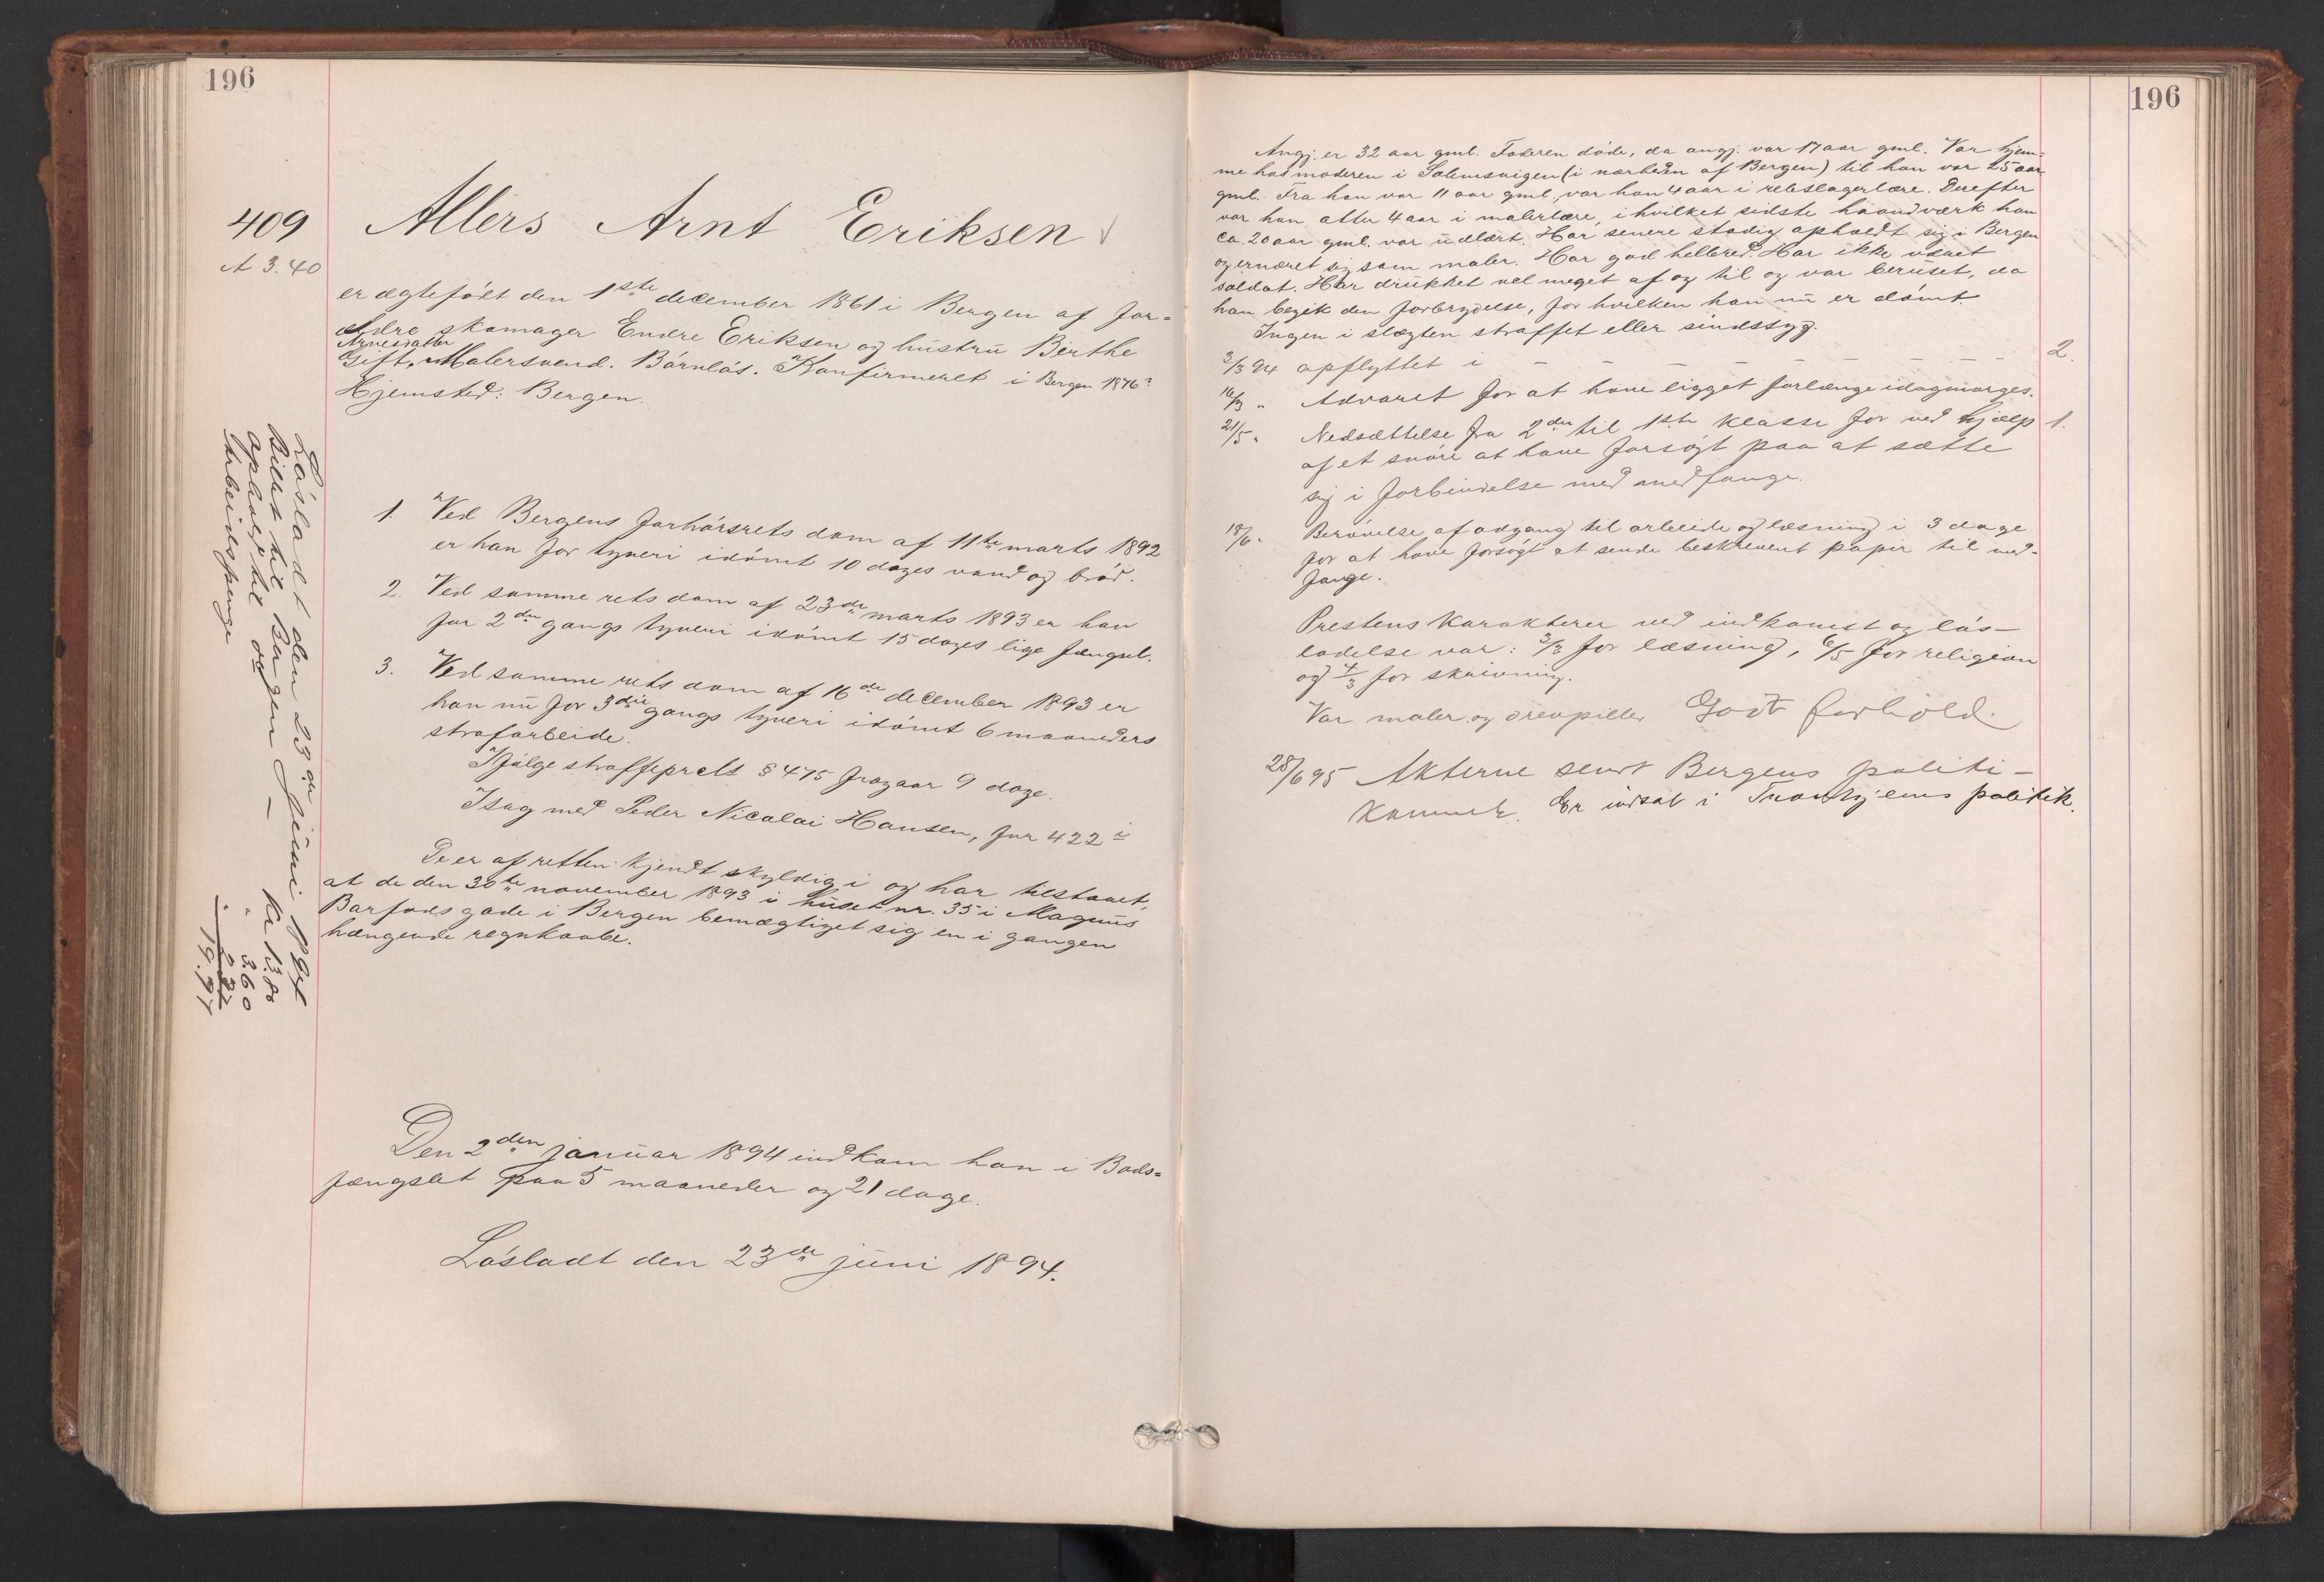 196
409
A 3.40
Allers Arnt Eriksen
er ægtefødt den 1ste december 1861 i Bergen af for-
ældre skomager Endre Eriksen og hustru Birthe
Arnesdatter
Gift. Malersvend. Børnløs. Konfirmeret i Bergen 1876?
Hjemsted: Bergen.
1. Ved Bergens forhørsrets dom af 11te marts 1892
er han for tyveri idømt 10 dages vand og brød.
2. Ved samme rets dom af 23de marts 1893 er han
for 2den gangs tyveri idømt 15 dages lige fængsel.
3. Ved samme rets dom af 16de december 1893 er
han nu for 3die gangs tyveri idømt 6 maaneders
strafarbeide.
Ifølge straffeprclt § 475 fragaar 9 dage.
Isag med Peder Nicolai Hansen, fnr 422
De er af retten kjendt skyldig i og har tilstaaet,
at de den 30te november 1893 i huset nr. 35 i Magnus
Barfods gade i Bergen bemægtiget sig en i gangen
hængende regnkaabe.
Den 2den januar 1894 indkom han i Bods-
fængslet paa 5 maaneder og 21 dage.
Løsladt den 23de juni 1894.
Løsladt den 23de juni 1894
Billet til Bergen kr 13.80
ophold til og " 3.60
Arbeidspenge
19.97
196
Angj. er 32 aar gml. Faderen døde, da angj. var 17 aar gml. Var hjem-
me hos moderen i Solemsvigen (i nærheden af Bergen) til han var 25 aar
gml. Fra han var 11 aar gml., var han 4 aar i rebslagerlære. Derefter
var han atter 4 aar i malerlære, i hvilket sidste haandværk han
ca. 20 aar gml. var udlært. Har senere stadig opholdt sig i Bergen
og ernæret sig som maler. Har god helbred. Har ikke været
soldat. Har drukket vel meget af og til og var beruset, da
han begik den forbrydelse, for hvilken han nu er dømt.
Ingen i slægten straffet eller sindssyg.
3/3 94 opflyttet i - - - - - - - - 2.
16/3 " Advaret for at have ligget forlænge idagmorges.
21/5 " Nedsættelse fra 2den til 1ste klasse for ved hjælp 1.
af et snøre at have forsøgt paa at sætte
sig i forbindelse med medfange.
18/6 " Berøvelse af adgang til arbeide og læsning i 3 dage
for at have forsøgt at sende beskrevent papir til med-
fange.
Prestens karakterer ved indkomst og løs-
ladelse var: 3/3 for læsning, 6/5 for religion
og 4/3 for skrivning.
Var maler og drevpiller Godt forhold.
28/6 95 Akterne sendt Bergens politi-
kammer. Er indsat i Tronhjems politik.